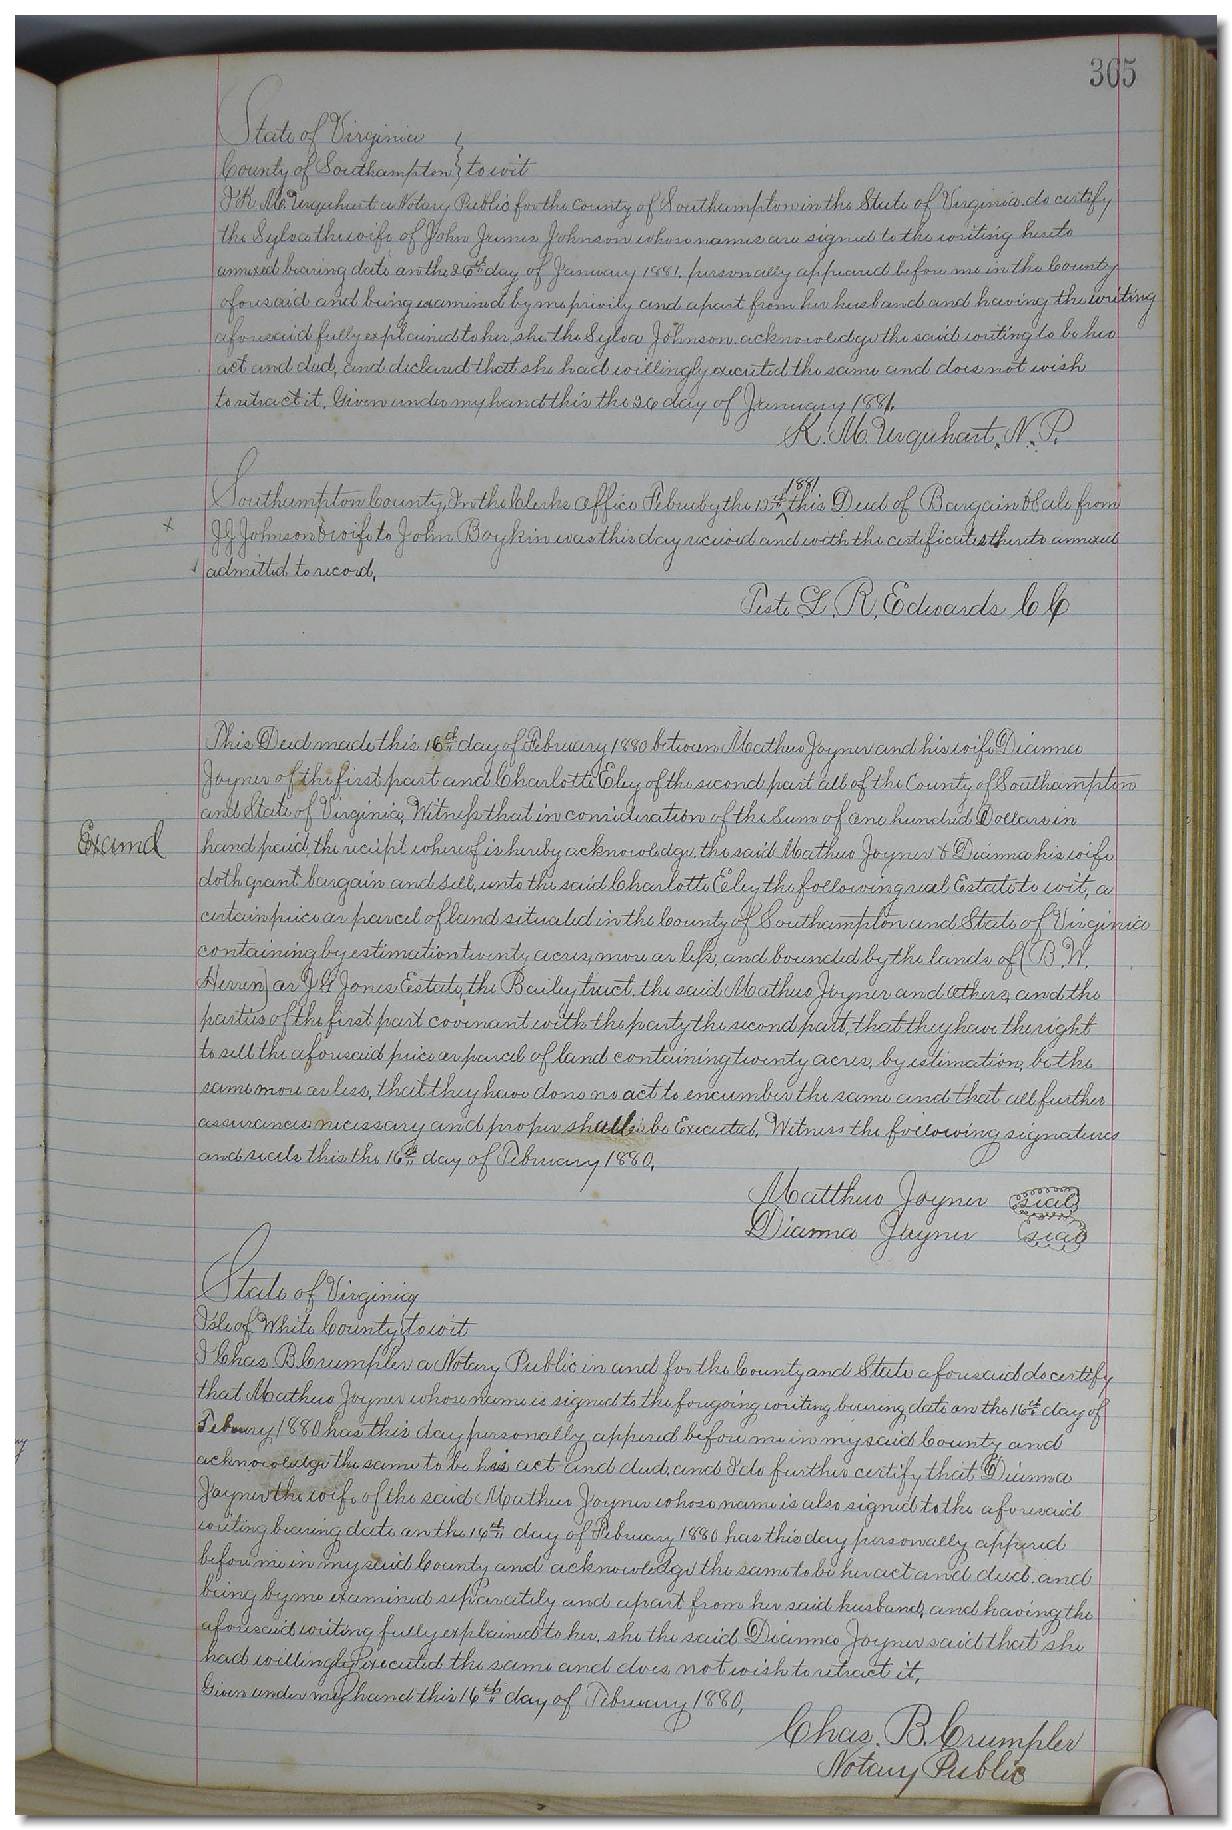 365
State of Virginia
County of Southampton } to wit
I K. M. Urquhart a Notary Public for the county of Southampton in the State of Virginia do certify
the Sylva the wife of John James Johnson whose names are signed to the writing hereto
annexed bearing date on the 26th day of January 1881. personally appeared before me in the County
aforesaid and being examined by me privily and apart from her husband and having the writing
aforesaid fully explained to her, she the Sylva Johnson acknowledge the said writing to be her
act and deed, and declared that she had willingly executed the same and does not wish
to retract it. Given under my hand this the 26 day of January 1881.
K. M. Urquhart, N. P.
1881
Southampton County, In the Clerks Office Februby the 12th this Deed of Bargain & Sale from
x J J Johnson & wife to John Boykin was this day received and with the certificates thereto annexed
admitted to record,
Teste L. R. Edwards C C
This Deed made this 16th day of February 1880 between Mathew Joyner and his wife Dianna
Joyner of the first part and Charlotte Eley of the second part all of the County of Southampton
and State of Virginia, Witness that in consideration of the Sum of one hundred Dollars in
Examd hand paid, the receipt whereof is hereby acknowledge, the said Mathew Joyner & Dianna his wife
doth grant bargain and sell, unto the said Charlotte Eley the following real Estate to wit, a
certain piece or parcel of land situated in the County of Southampton and State of Virginia
containing by estimation twenty acres, more or less, and bounded by the lands of ( B. W.
Herren) or J G Jones Estate, the Bailey tract, the said Mathew Joyner and others, and the
parties of the first part covenant with the party the second part, that they have the right
to sell the aforesaid piece or parcel of land containing twenty acres, by estimation, be the
same more or less, that they have done no act to encumber the same and that all further
assurances necessary and proper shall be Executed, Witness the following signatures
and seals this the 16th day of February 1880,
Matthew Joyner seal
Dianna Joyner seal
State of Virginia
Isle of White County, to wit
I Chas. B. Crumpler a Notary Public in and for the County and State aforesaid do certify
that Mathew Joyner whose name is signed to the forgoing writing bearing date on the 16th day of
Febuary 1880 has this day personally, appered before me in my said County and
acknowledge the same to be his act and deed, and I do further certify that Dianna
Joyner the wife of the said Mathew Joyner whose name is also signed to the aforesaid
writing bearing date on the 16th day of February 1880 has this day personally appered
before me in my said County and acknowledge the same to be her act and deed. and
being by me examined separately and apart from her said husband, and having the
aforesaid writing fully explained to her, she the said Dianna Joyner said that she
had willingly executed the same and does not wish to retract it,
Given under my hand this 16th day of February 1880,
Chas. B. Crumpler
Notary Public